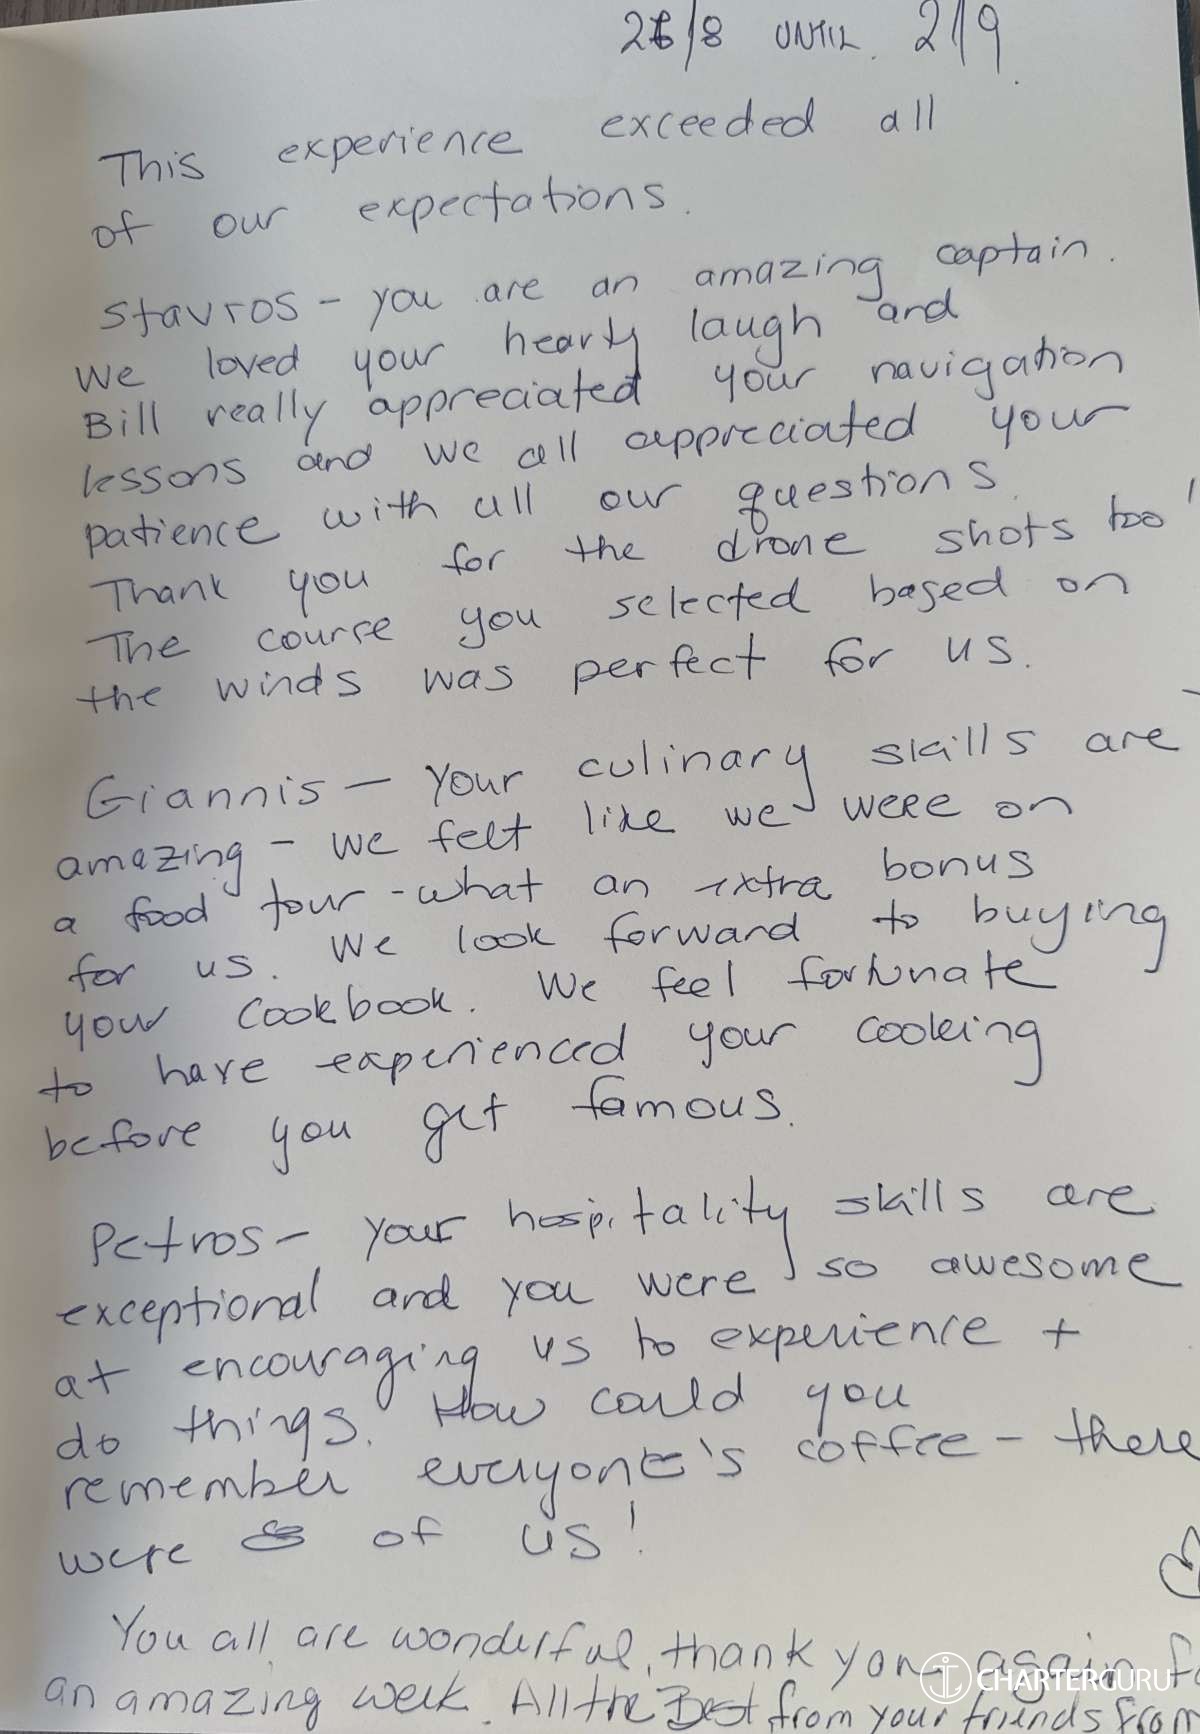 26/8 UNTIL 2/9
This experience exceeded all
of our expectations.
Stavros - you are an amazing captain.
We loved your hearty laugh and
Bill really appreciated your navigation
lessons and we all appreciated your
patience with all our questions.
Thank you for the drone shots too!
The course you selected based on
the winds was perfect for us.
Giannis - Your culinary skills are
amazing - we felt like we were on
a food tour - what an extra bonus
for us. We look forward to buying
your cookbook. We feel fortunate
to have experienced your cooking
before you get famous.
Petros - your hospitality skills are
exceptional and you were so awesome
at encouraging us to experience +
do things. How could you
remember everyone's coffee - there
were of us!
You all are wonderful, thank you again
an amazing week. All the Best from your friends from
CHARTERGURU